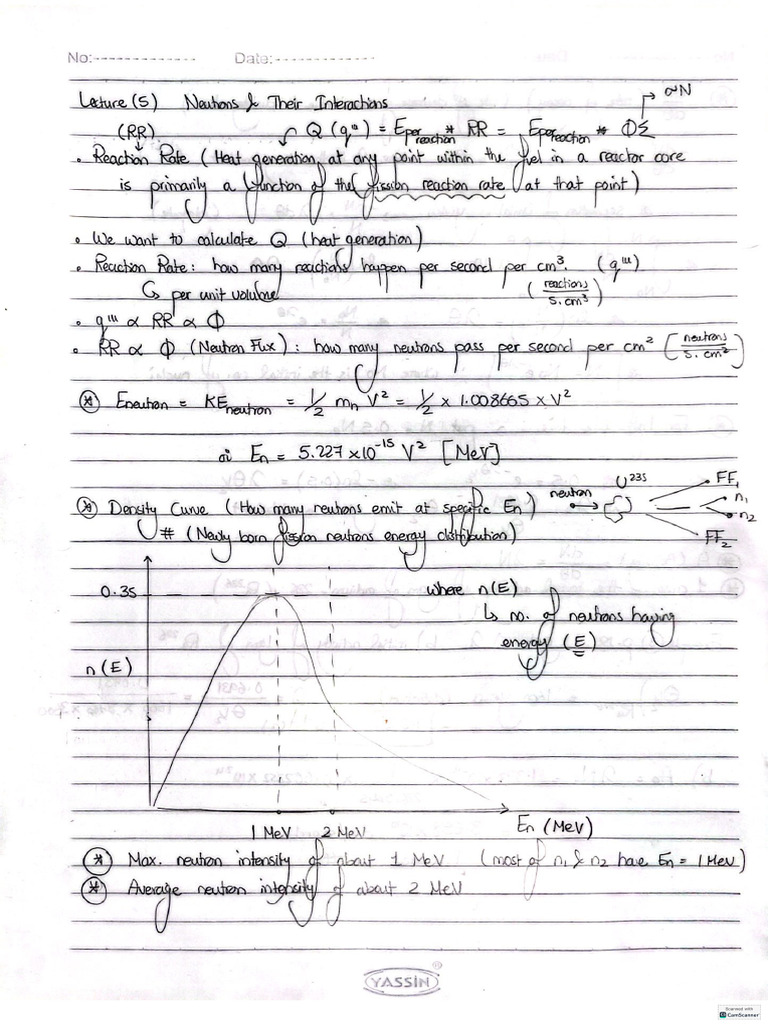 No:-------------- Date:--------------
Lecture (5) Neutrons & Their Interactions
→ σN
(RR) Q (q''') = Eper reaction * RR = Eper reaction * ΦΣ
• Reaction Rate (Heat generation at any point within the fuel in a reactor core
is primarily a function of the fission reaction rate at that point)
• We want to calculate Q (heat generation)
• Reaction Rate: how many reactions happen per second per cm³. (q''')
↳ per unit volume (reactions / s.cm³)
• q''' ∝ RR ∝ Φ
• RR ∝ Φ (Neutron Flux): how many neutrons pass per second per cm² [neutrons / s.cm²]
* Eneutron = KEneutron = 1/2 mn V² = 1/2 × 1.008665 × V²
∴ En = 5.227 × 10⁻¹⁵ V² [MeV]
* Density Curve (How many neutrons emit at specific En) neutron → U²³⁵ FF1 n1 n2 FF2
# (Newly born fission neutrons energy distribution)
0.35 where n(E)
↳ no. of neutrons having
energy (E)
n(E)
1 MeV 2 MeV En (MeV)
* Max. neutron intensity of about 1 MeV (most of n1 & n2 have En = 1 MeV)
* Average neutron intensity of about 2 MeV
YASSIN®
Scanned with
CamScanner